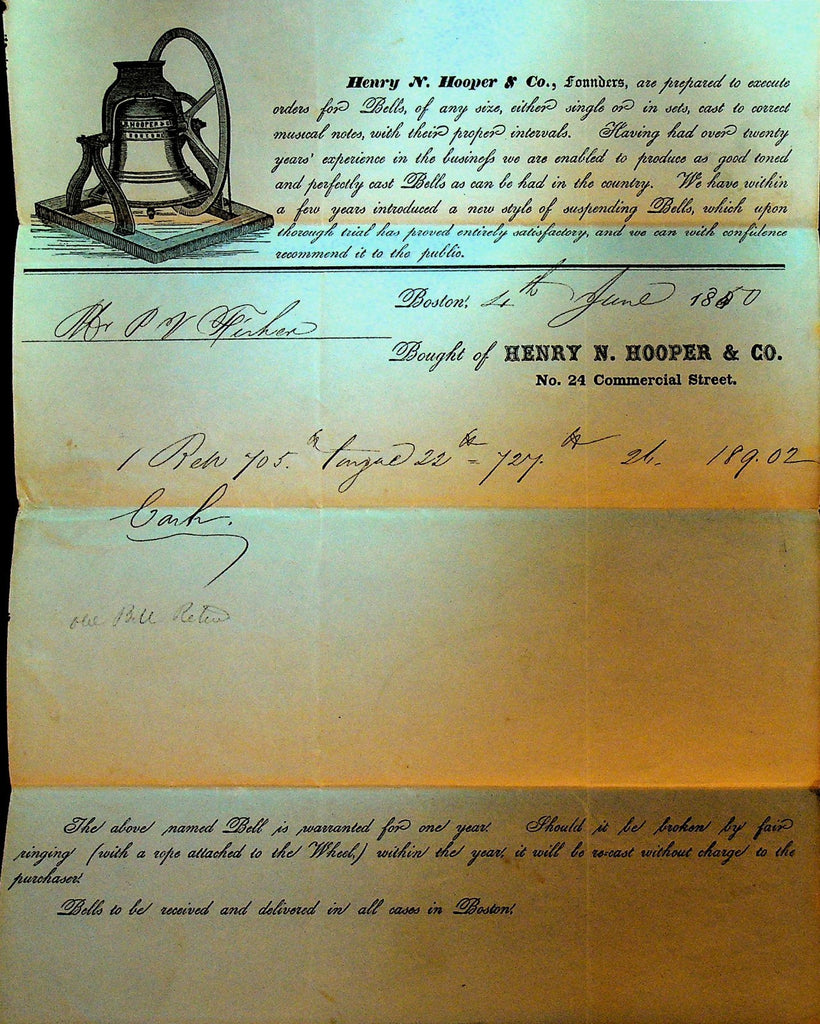 H. HOOPER & CO
BOSTON
Henry N. Hooper & Co., Founders, are prepared to execute
orders for Bells, of any size, either single or in sets, cast to correct
musical notes, with their proper intervals. Having had over twenty
years' experience in the business we are enabled to produce as good toned
and perfectly cast Bells as can be had in the country. We have within
a few years introduced a new style of suspending Bells, which upon
thorough trial has proved entirely satisfactory, and we can with confidence
recommend it to the public.
Boston, 4th June 1850
Mr P V Fisher
Bought of HENRY N. HOOPER & CO.
No. 24 Commercial Street.
1 Bell 705. lb tongue 22 lb = 727. lb 26. 189.02
Cash.
old Bill
The above named Bell is warranted for one year. Should it be broken by fair
ringing (with a rope attached to the Wheel,) within the year, it will be re-cast without charge to the
purchaser.
Bells to be received and delivered in all cases in Boston.